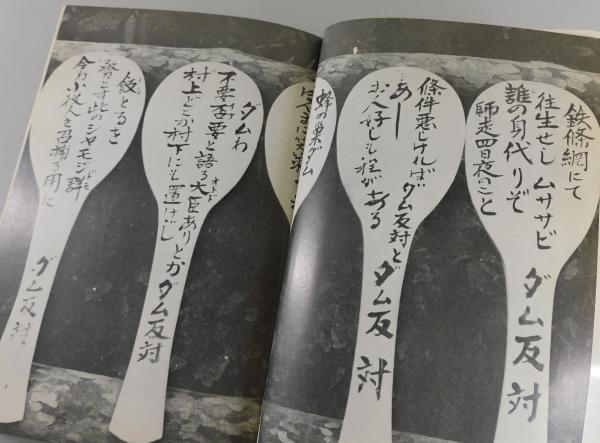 鉄條網にて
往生せし ムササビ
誰の身代りぞ
師走四日夜のこと
ダム反対
條件悪しければダム反対と
あー
お人好しも程がある
ダム反対
蜂の巣ダム
ダムわ
要と語る大臣ありとか
オトド
村上どこか村下にも置け
ダム反対
飯とるき
此のシャモジ
小役人を
用に
ダム反対